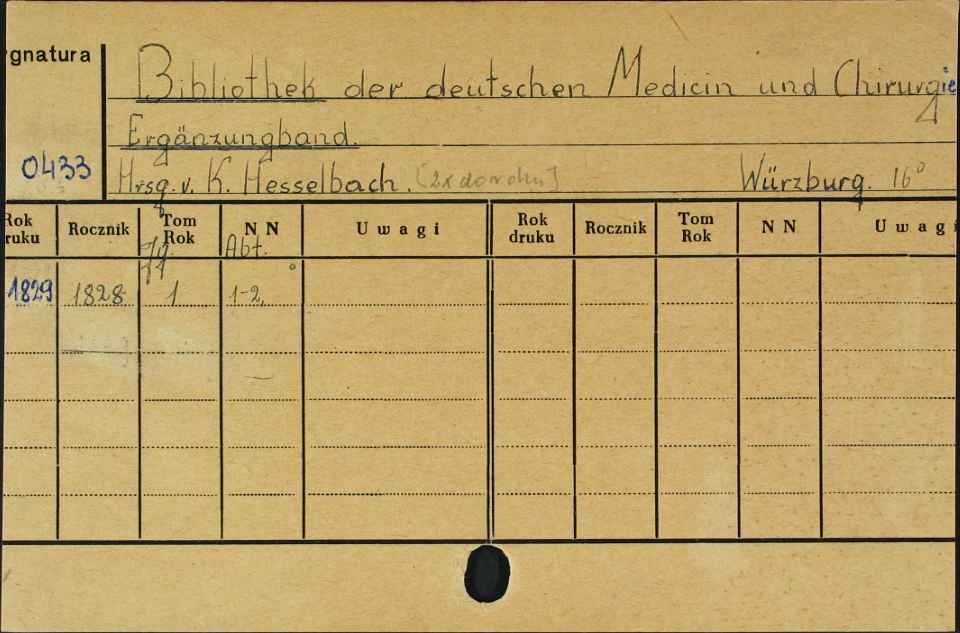 gnatura
Bibliothek der deutschen Medicin und Chirurgie
Ergänzungband.
0433
Hrsg. v. K. Hesselbach. Würzburg. 16°
Rok
ruku
Rocznik
Tom
Rok
NN
Uwagi
Rok
druku
Rocznik
Tom
Rok
NN
Uwagi
Abt.
1829 1828 1 1-2.